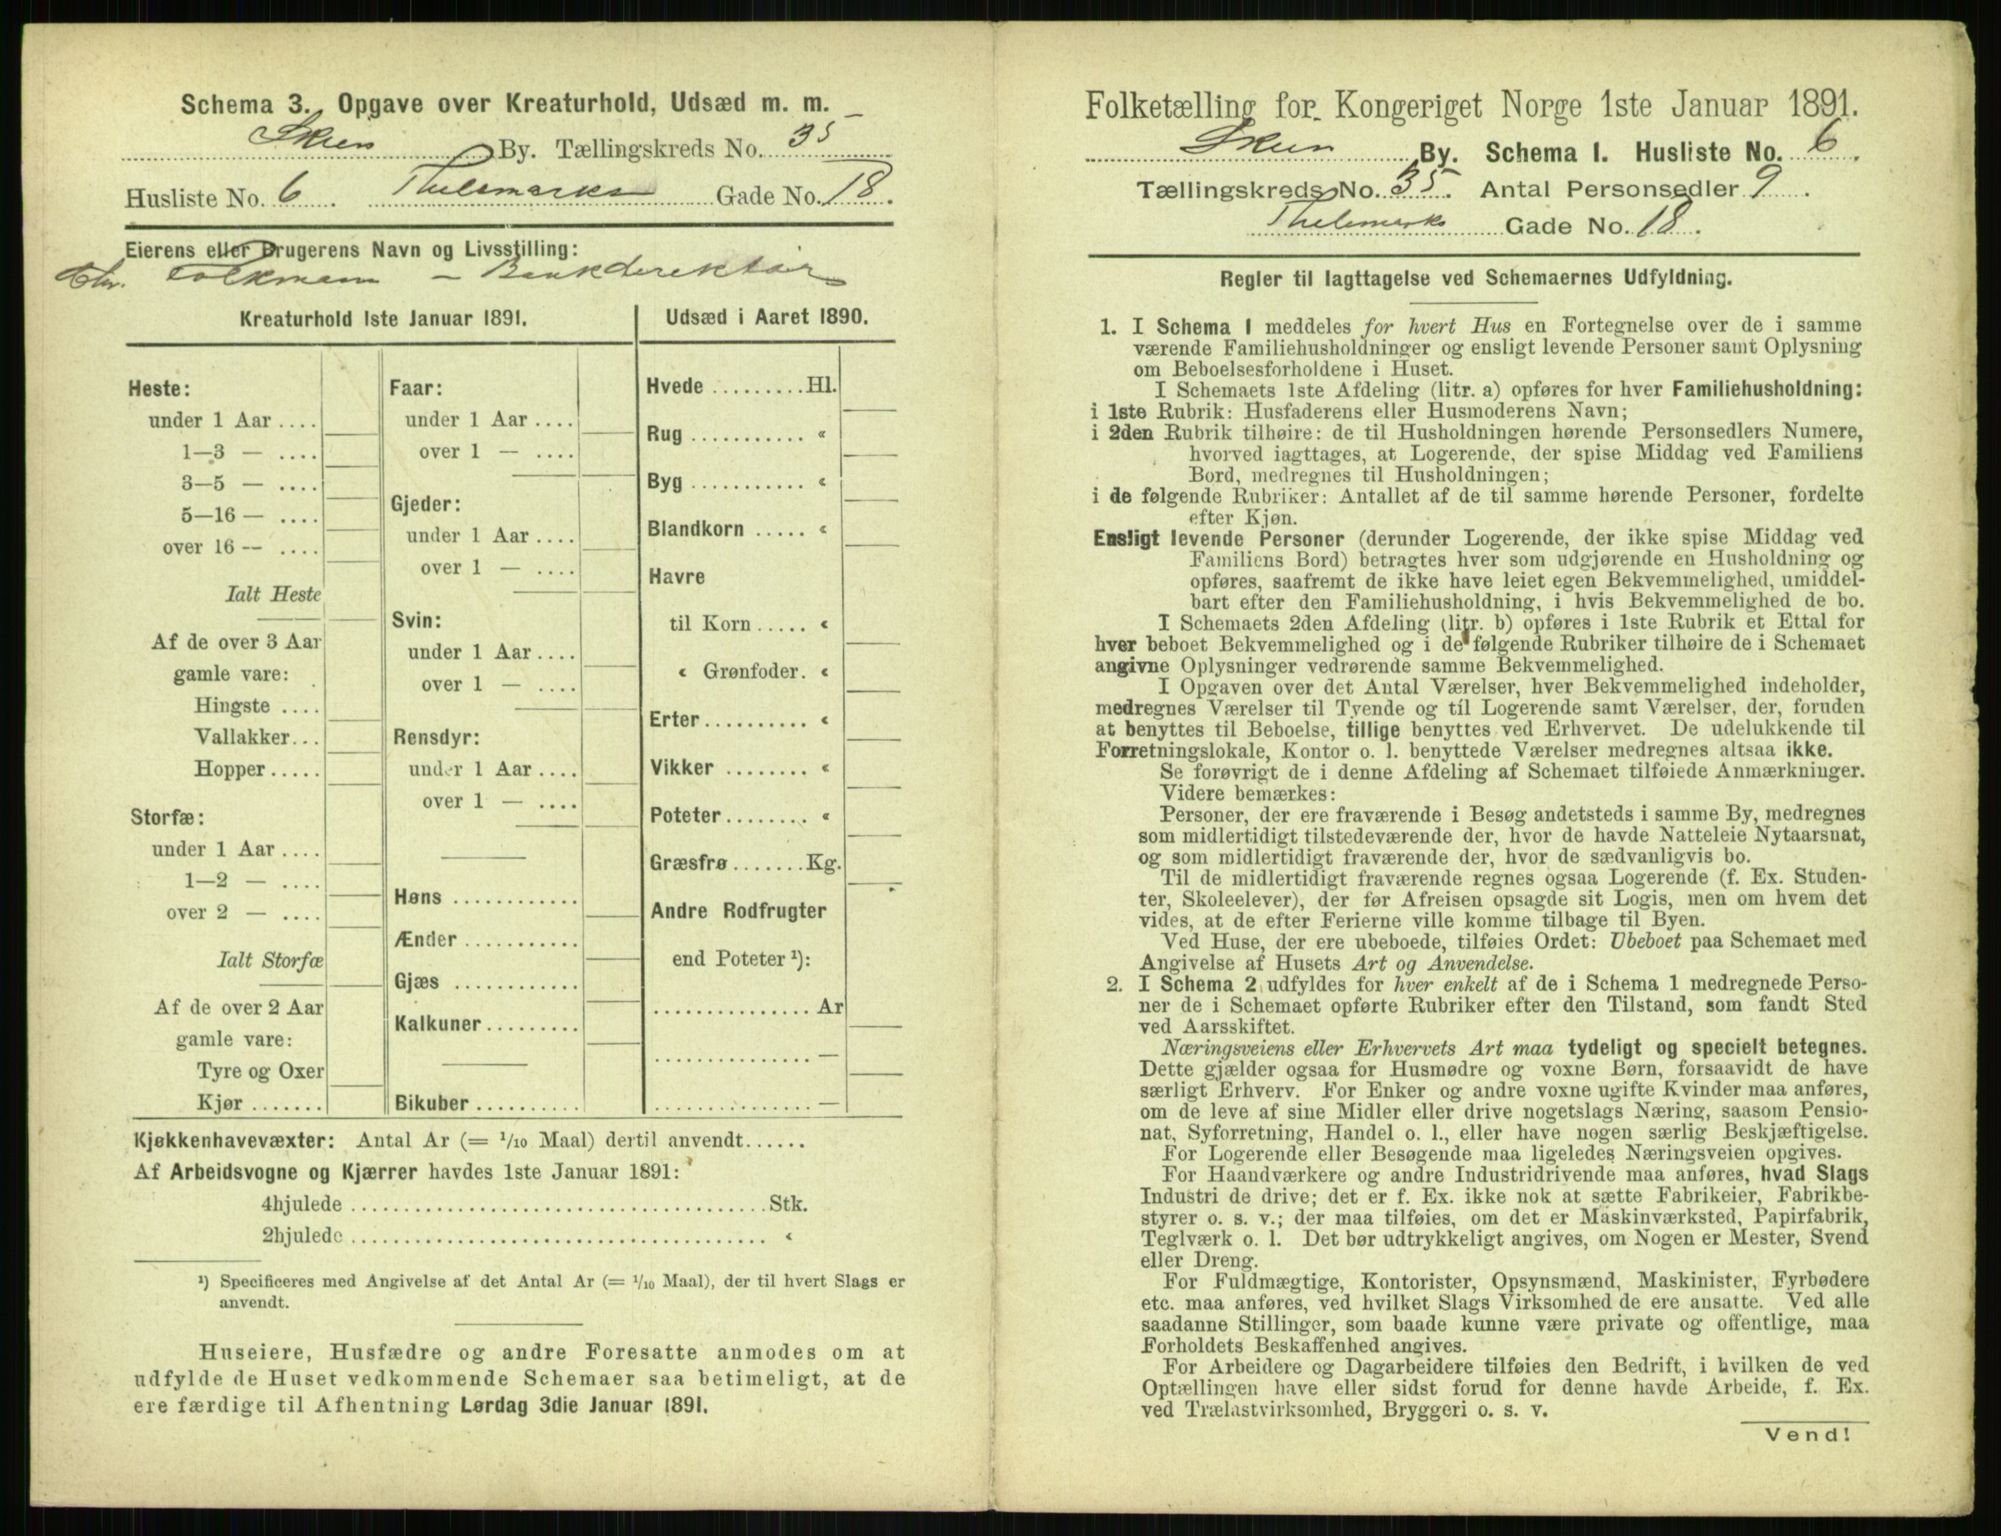 Schema 3. Opgave over Kreaturhold, Udsæd m. m.
Skien By. Tællingskreds No. 35
Husliste No. 6 Thelemarks Gade No. 18.
Eierens eller Brugerens Navn og Livsstilling:
Chr. Folkmann – Bankdirektør
Kreaturhold 1ste Januar 1891.
Heste:
under 1 Aar ....
1—3 — ....
3—5 — ....
5—16 — ....
over 16 — ....
Ialt Heste
Af de over 3 Aar
gamle vare:
Hingste ....
Vallakker...
Hopper.....
Storfæ:
under 1 Aar ....
1—2 — ....
over 2 — ....
Ialt Storfæ
Af de over 2 Aar
gamle vare:
Tyre og Oxer
Kjør .......
Faar:
under 1 Aar ....
over 1 — ....
Gjeder:
under 1 Aar ....
over 1 — ....
Svin:
under 1 Aar ....
over 1 — ....
Rensdyr:
under 1 Aar ....
over 1 — ....
Høns ............
Ænder ...........
Gjæs ............
Kalkuner.........
Bikuber..........
Udsæd i Aaret 1890.
Hvede .........Hl.
Rug ........... «
Byg ........... «
Blandkorn ..... «
Havre
til Korn ..... «
« Grønfoder. «
Erter.......... «
Vikker ........ «
Poteter........ «
Græsfrø.......Kg.
Andre Rodfrugter
end Poteter ¹):
............... Ar
............... —
............... —
Kjøkkenhavevæxter: Antal Ar (= 1/10 Maal) dertil anvendt......
Af Arbeidsvogne og Kjærrer havdes 1ste Januar 1891:
4hjulede ....................................... Stk.
2hjulede ....................................... «
¹) Specificeres med Angivelse af det Antal Ar (= 1/10 Maal), der til hvert Slags er
anvendt.
Huseiere, Husfædre og andre Foresatte anmodes om at
udfylde de Huset vedkommende Schemaer saa betimeligt, at de
ere færdige til Afhentning Lørdag 3die Januar 1891.
Folketælling for Kongeriget Norge 1ste Januar 1891.
Skien By. Schema 1. Husliste No. 6.
Tællingskreds No. 35. Antal Personsedler 9.
Thelemarks Gade No. 18.
Regler til Iagttagelse ved Schemaernes Udfyldning.
1. I Schema 1 meddeles for hvert Hus en Fortegnelse over de i samme
værende Familiehusholdninger og ensligt levende Personer samt Oplysning
om Beboelsesforholdene i Huset.
I Schemaets 1ste Afdeling (litr. a) opføres for hver Familiehusholdning:
i 1ste Rubrik: Husfaderens eller Husmoderens Navn;
i 2den Rubrik tilhøire: de til Husholdningen hørende Personsedlers Numere,
hvorved iagttages, at Logerende, der spise Middag ved Familiens
Bord, medregnes til Husholdningen;
i de følgende Rubriker: Antallet af de til samme hørende Personer, fordelte
efter Kjøn.
Ensligt levende Personer (derunder Logerende, der ikke spise Middag ved
Familiens Bord) betragtes hver som udgjørende en Husholdning og
opføres, saafremt de ikke have leiet egen Bekvemmelighed, umiddel-
bart efter den Familiehusholdning, i hvis Bekvemmelighed de bo.
I Schemaets 2den Afdeling (litr. b) opføres i 1ste Rubrik et Ettal for
hver beboet Bekvemmelighed og i de følgende Rubriker tilhøire de i Schemaet
angivne Oplysninger vedrørende samme Bekvemmelighed.
I Opgaven over det Antal Værelser, hver Bekvemmelighed indeholder,
medregnes Værelser til Tyende og til Logerende samt Værelser, der, foruden
at benyttes til Beboelse, tillige benyttes ved Erhvervet. De udelukkende til
Forretningslokale, Kontor o. l. benyttede Værelser medregnes altsaa ikke.
Se forøvrigt de i denne Afdeling af Schemaet tilføiede Anmærkninger.
Videre bemærkes:
Personer, der ere fraværende i Besøg andetsteds i samme By, medregnes
som midlertidigt tilstedeværende der, hvor de havde Natteleie Nytaarsnat,
og som midlertidigt fraværende der, hvor de sædvanligvis bo.
Til de midlertidigt fraværende regnes ogsaa Logerende (f. Ex. Studen-
ter, Skoleelever), der før Afreisen opsagde sit Logis, men om hvem det
vides, at de efter Ferierne ville komme tilbage til Byen.
Ved Huse, der ere ubeboede, tilføies Ordet: Ubeboet paa Schemaet med
Angivelse af Husets Art og Anvendelse.
2. I Schema 2 udfyldes for hver enkelt af de i Schema 1 medregnede Perso-
ner de i Schemaet opførte Rubriker efter den Tilstand, som fandt Sted
ved Aarsskiftet.
Næringsveiens eller Erhvervets Art maa tydeligt og specielt betegnes.
Dette gjælder ogsaa for Husmødre og voxne Børn, forsaavidt de have
særligt Erhverv. For Enker og andre voxne ugifte Kvinder maa anføres,
om de leve af sine Midler eller drive nogetslags Næring, saasom Pensio-
nat, Syforretning, Handel o. l., eller have nogen særlig Beskjæftigelse.
For Logerende eller Besøgende maa ligeledes Næringsveien opgives.
For Haandværkere og andre Industridrivende maa anføres, hvad Slags
Industri de drive; det er f. Ex. ikke nok at sætte Fabrikeier, Fabrikbe-
styrer o. s. v.; der maa tilføies, om det er Maskinværksted, Papirfabrik,
Teglværk o. l. Det bør udtrykkeligt angives, om Nogen er Mester, Svend
eller Dreng.
For Fuldmægtige, Kontorister, Opsynsmænd, Maskinister, Fyrbødere
etc. maa anføres, ved hvilket Slags Virksomhed de ere ansatte. Ved alle
saadanne Stillinger, som baade kunne være private og offentlige, maa
Forholdets Beskaffenhed angives.
For Arbeidere og Dagarbeidere tilføies den Bedrift, i hvilken de ved
Optællingen have eller sidst forud for denne havde Arbeide, f. Ex.
ved Trælastvirksomhed, Bryggeri o. s. v.
Vend!